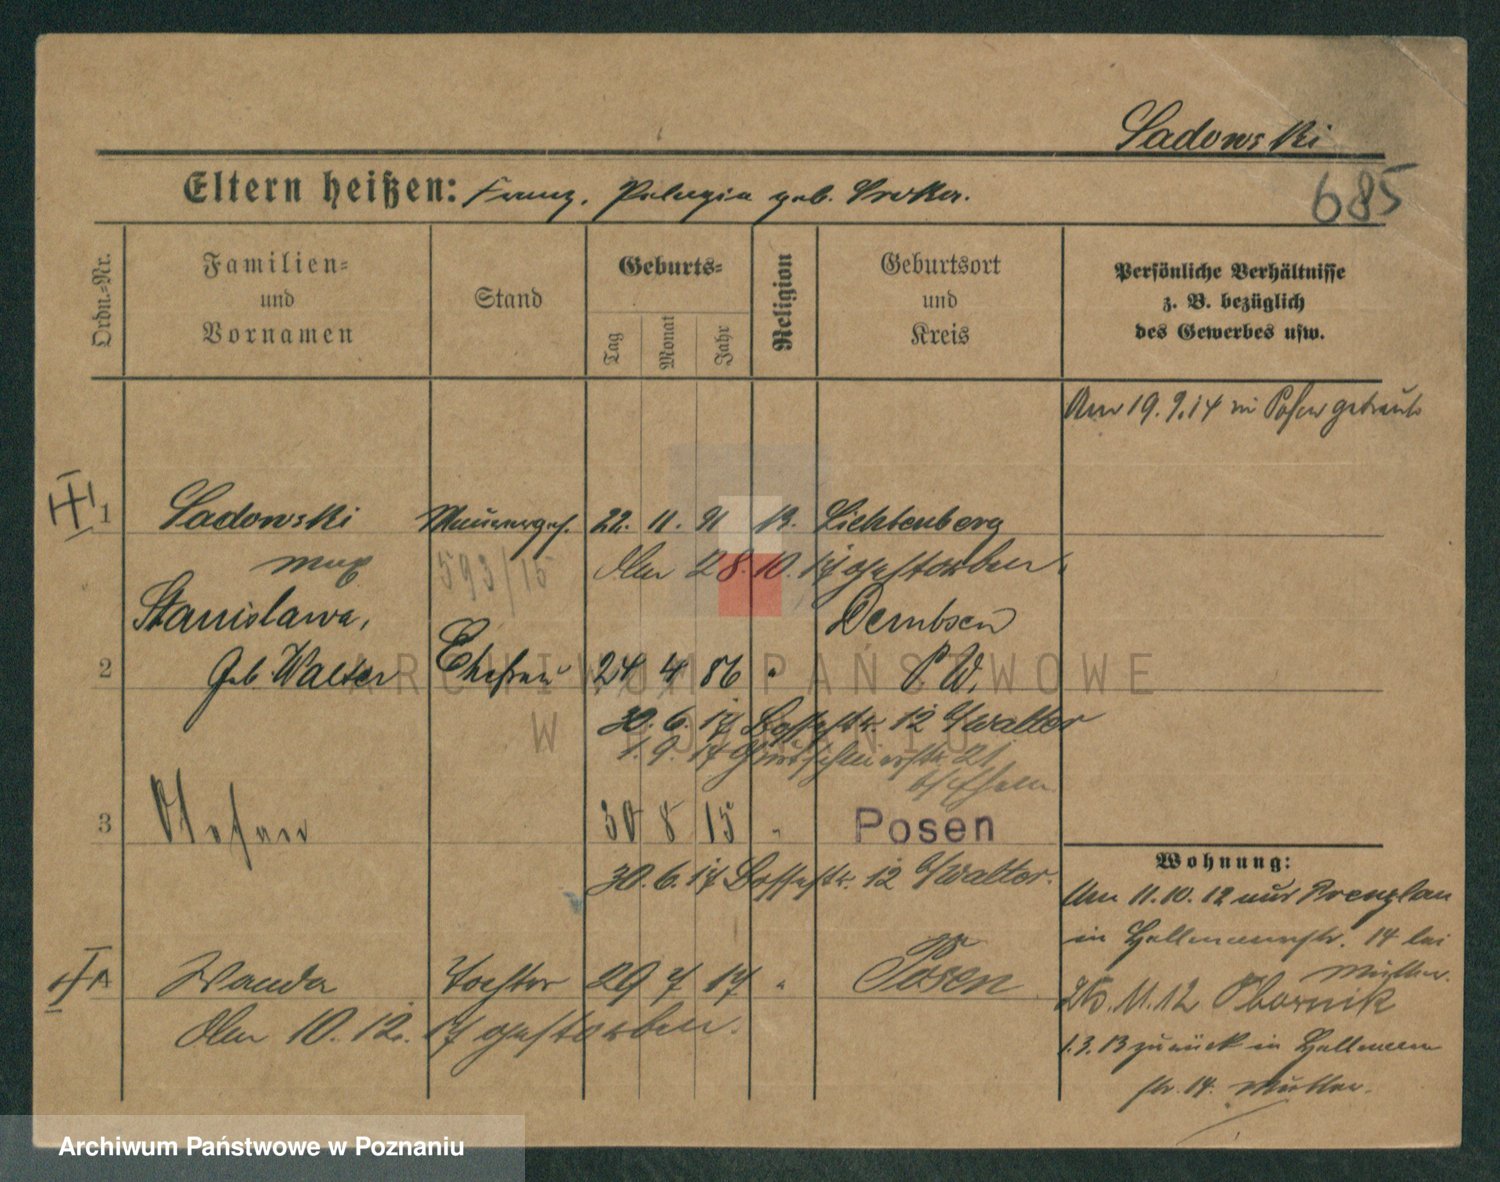 Sadowski
Eltern heißen: Franz, Pelagia geb. Sroka.
685
Ordn.=Nr.
Familien=
und
Vornamen
Stand
Geburts=
Tag
Monat
Jahr
Religion
Geburtsort
und
Kreis
Persönliche Verhältnisse
z. B. bezüglich
des Gewerbes usw.
Am 19.9.14 in Posen getraut
1 Sadowski Maurerges. 22. 11. 91 Lichtenberg
Max 593/15 Am 28.10.17 gestorben.
Stanislawa, Dembsen
2 geb Walter Ehefrau 24 4 86 " P. W.
30.6.17 12 b/Walter
1.9.17 21
3 Stefan 30 8 15 " Posen
30.6.17 12 b/Walter.
Wohnung:
Am 11.10.12 aus Prenzlau
in 14 bei
Mutter.
4 Wanda Tochter 29 7 17 " Posen
11.12 Obornik
Am 10.12.17 gestorben.
1.3.13 zurück in
str. 14. Mutter.
ARCHIWUM PAŃSTWOWE
W POZNANIU
Archiwum Państwowe w Poznaniu